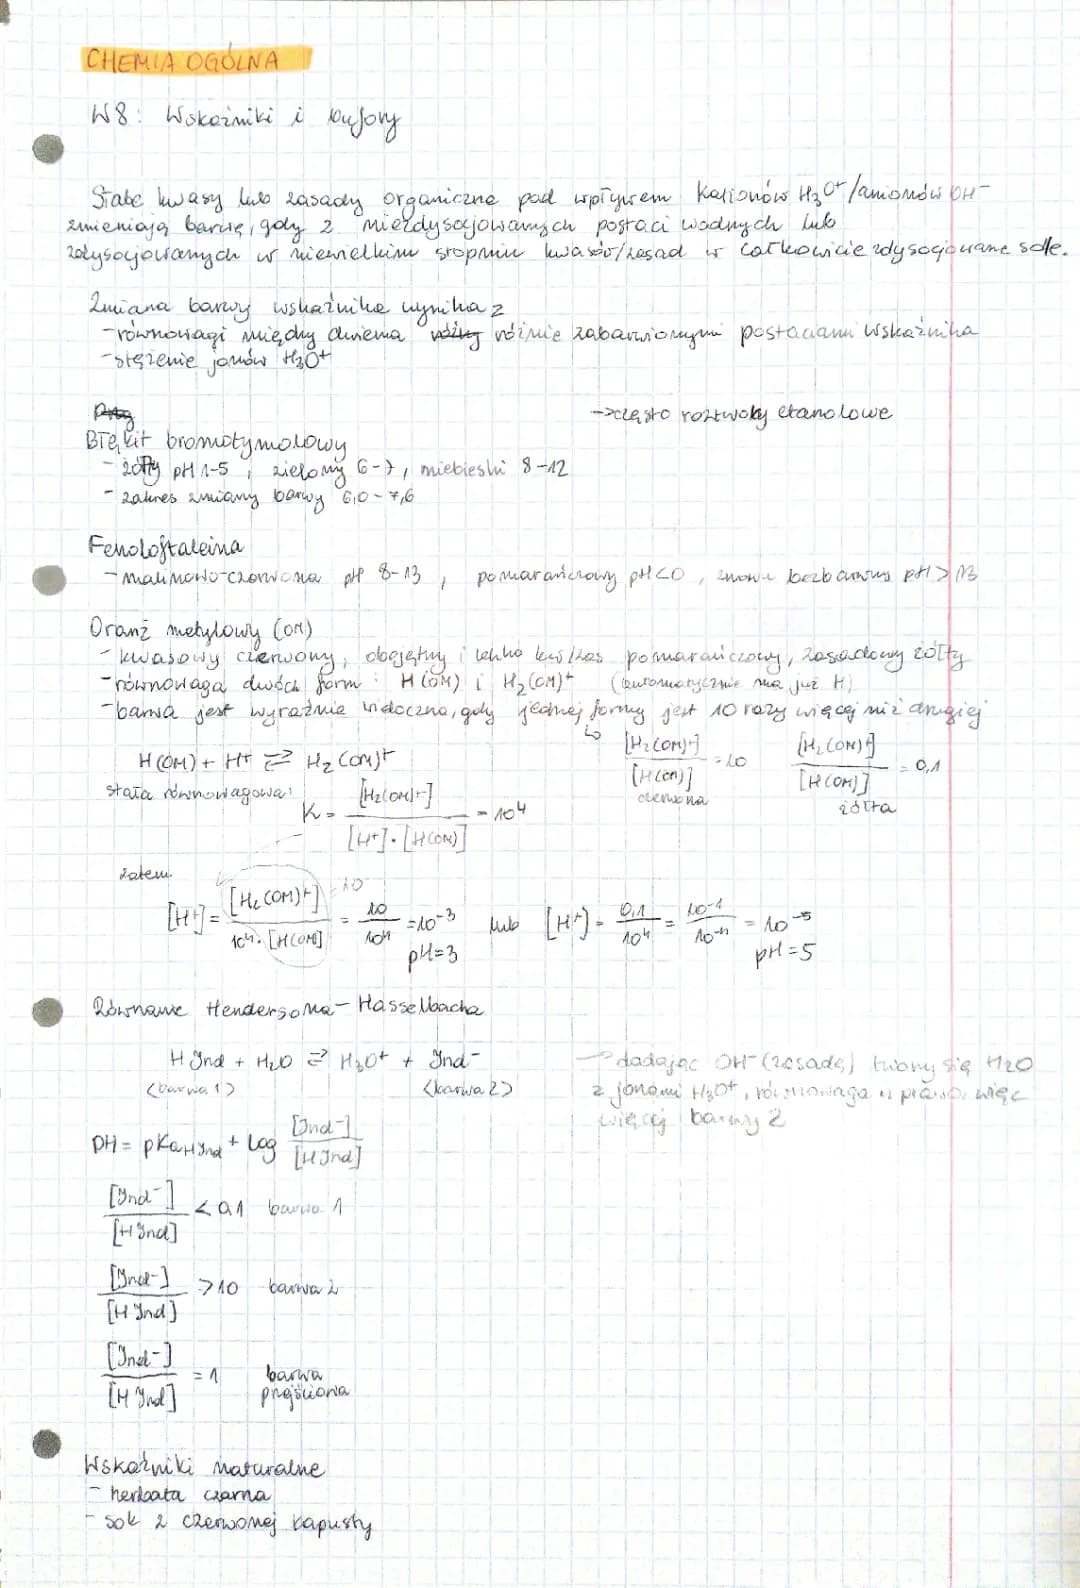 CHEMIA OGÓLNA
W8: Wskaźniki i bufory
Słabe kwasy lub zasady organiczne pod wpływem kationów H₃O⁺/anionów OH⁻
zmieniają barwę, gdy z niezdysocjowanych postaci wodnych lub
zdysocjowanych w niewielkim stopniu kwasów/zasad w całkowicie zdysocjowane sole.
Zmiana barwy wskaźnika wynika z
- równowagi między dwiema różnie zabarwionymi postaciami wskaźnika
- stężenie jonów H₃O⁺
-> często roztwory etanolowe
Błękit bromotymolowy
- żółty pH 1-5, zielony 6-7, niebieski 8-12
- zakres zmiany barwy 6,0-7,6
Fenoloftaleina
- malinowo-czerwona pH 8-13, pomarańczowy pH<0, znowu bezbarwny pH>13
Oranż metylowy (OM)
- kwasowy czerwony, obojętny i lekko kw/zas pomarańczowy, zasadowy żółty
- równowaga dwóch form: H(OM) i H₂(OM)⁺ (automatycznie ma już H)
- barwa jest wyraźnie widoczna, gdy jednej formy jest 10 razy więcej niż drugiej
↳ [H₂(OM)⁺] / [H(OM)] = 10 czerwona [H₂(OM)⁺] / [H(OM)] = 0,1 żółta
H(OM) + H⁺ ⇌ H₂(OM)⁺
stała równowagowa:
K = [H₂(OM)⁺] / [H⁺]·[H(OM)] = 10⁴
zatem
[H⁺] = [H₂(OM)⁺] / 10⁴·[H(OM)] = 10 / 10⁴ = 10⁻³ lub [H⁺] = 0,1 / 10⁴ = 10⁻¹ / 10⁻⁴ = 10⁻⁵
= 10
pH=3 pH=5
Równanie Hendersona-Hasselbacha
H Ind + H₂O ⇌ H₃O⁺ + Ind⁻
<barwa 1> <barwa 2>
-> dodając OH⁻ (zasadę) tworzy się H₂O
z jonami H₃O⁺, równowaga w prawo, więc
więcej barwy 2
pH = pKa HInd + log [Ind⁻] / [H Ind]
[Ind⁻] / [H Ind] < 0,1 barwa 1
[Ind⁻] / [H Ind] > 10 barwa 2
[Ind⁻] / [H Ind] = 1 barwa
przejściowa
Wskaźniki naturalne
- herbata czarna
- sok z czerwonej kapusty